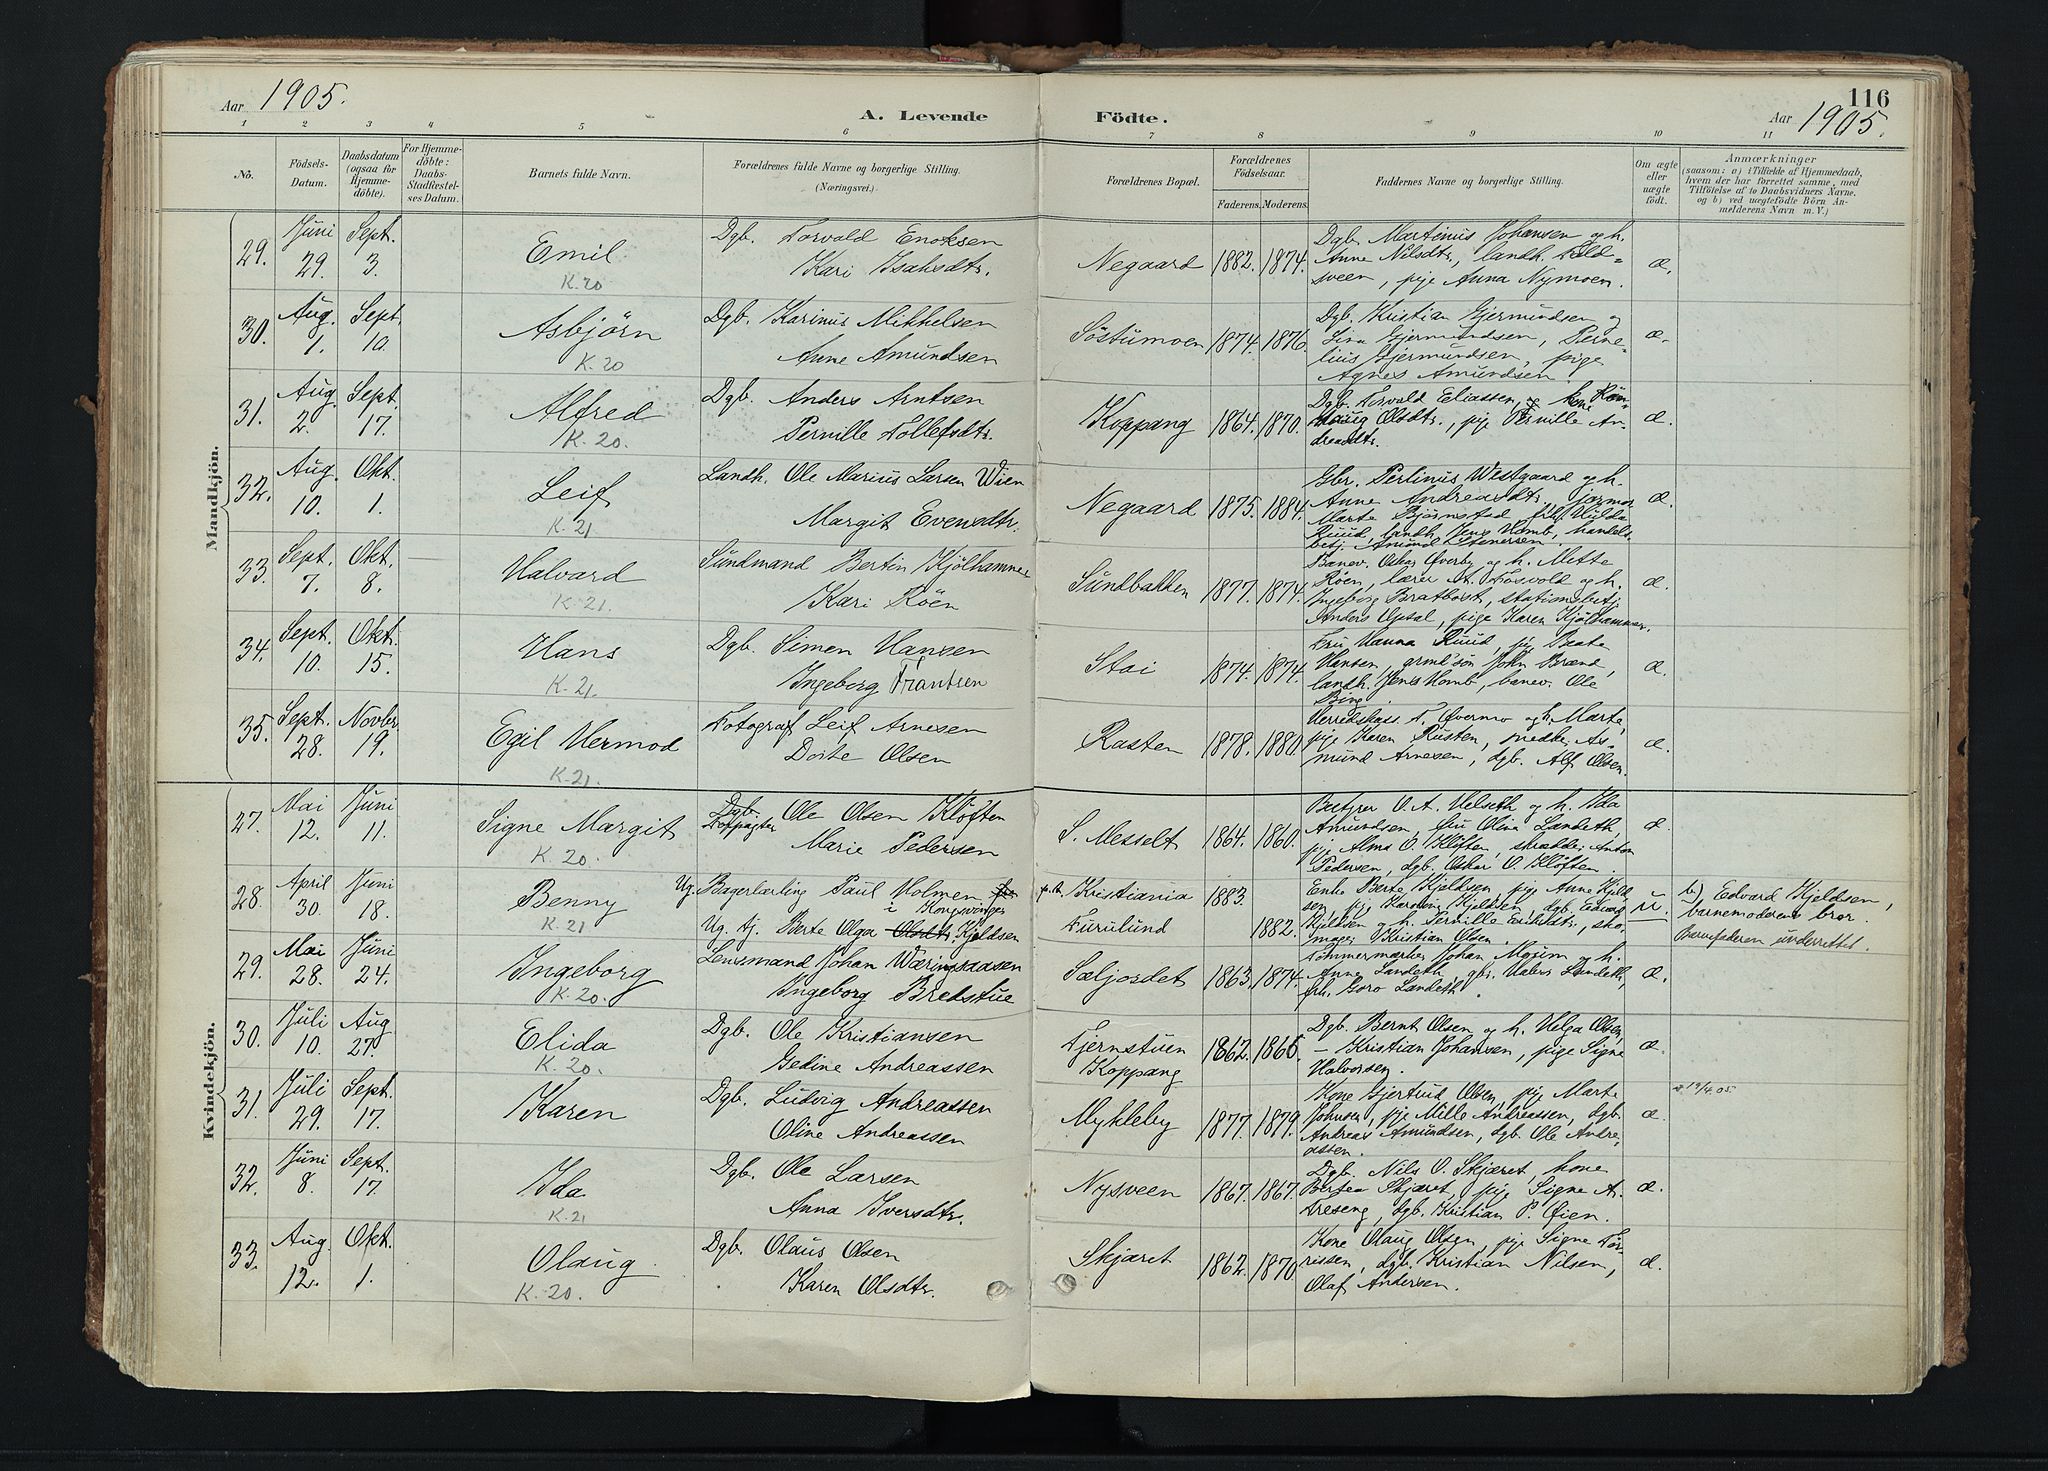 Aar 1905.
A. Levende Födte.
116
Aar 1905.
1 2 3 4 5 6 7 8 9 10 11
No.
Födsels-Datum.
Daabsdatum (ogsaa for Hjemmedöbte).
For Hjemmedöbte: Daabs-Stadfæstelses Datum.
Barnets fulde Navn.
Forældrenes fulde Navne og borgerlige Stilling. (Næringsvei.)
Forældrenes Bopæl.
Forældrenes Födselsaar.
Faderens. Moderens.
Faddernes Navne og borgerlige Stilling.
Om ægte eller uægte födt.
Anmærkninger
(saasom: a) i Tilfælde af Hjemmedaab, hvem der har forrettet samme, med Tilföielse af to Daabsvidners Navne. og b) ved uægtefödte Börn Anmelderens Navn m. V.)
Mandkjön.
29. Juni 29. Sept. 3. Emil K. 20
Dgb. Torvald Enoksen
Kari Isaksdtr.
Negaard 1882. 1874.
Dgb. Martinus Johansen og h.
Anne Nilsdtr., landh. Fold=
sveen, pige Anna Nymoen.
æ.
30. Aug. 1. Sept. 10. Asbjörn K. 20
Dgb. Karinus Mikkelsen
Anne Amundsen
Söstumoen 1874. 1876.
Dgb. Kristian Gjermundsen og
Lina Gjermundsen, Peine=
lius Gjermundsen, pige
Agnes Amundsen.
æ.
31. Aug. 2. Sept. 17. Alfred K. 20.
Dgb. Anders Arntsen
Pernille Tollefsdtr.
Koppang 1864. 1870.
Dgb. Torvald Eliassen, og kone
Olsdtr., pige Pernille An-
dreasdtr.
æ.
32. Aug. 10. Okt. 1. Leif K. 21
Landh. Ole Marius Larsen Wien
Margit Evensdtr.
Negaard 1875. 1884.
Gbr. Perlinus Westgaard og h.
Anne Andreasdtr., jormor
Marte Björnstad, frk. Hilda
Ruud, landh. Jens Homb, handels-
betj. Amund Stenersen.
æ.
33. Sept. 7. Okt. 8. — Halvard K. 21.
Sundmand Bertin Kjölhammer
Kari Röen
Sundbakken 1877. 1874.
Banev. Oskar Överby og h. Mette
Röen, lærer A. Fosvold og h.
Ingeborg Bratborst, stationsbetj.
Anders Opsal, pige Karen Kjölhammer.
æ.
34. Sept. 10. Okt. 15. Hans K. 21.
Dgb. Simen Hansen
Ingeborg Frantsen
Stai 1874. 1874.
Fru Hanna Ruud, pige Beate
Hansen, grml sön John Brænd,
landh. Jens Homb, banev. Ole
Bing.
æ.
35. Sept. 28. Novbr. 19. Egil Hermod K. 21.
Fotograf Leif Arnesen
Dorte Olsen
Rasten 1878. 1880.
Herredskass. T. Övermo og h. Marte,
pige Karen Rusten, snedker As-
mund Arnesen, dgb. Alf Olsen.
æ.
Kvindekjön.
27. Mai 12. Juni 11. Signe Margit K. 20.
Dgb. Ole Olsen Klöften
Marie Pedersen
S. Messelt 1864. 1860.
Bestyrer O. A. Helseth og h. Ida
Amundsen, fru Olina Landeth,
pige Alma O. Klöften, skrædder Anton
Pedersen, dgb. Oskar O. Klöften.
æ.
28. April 30. Juni 18. Benny K. 21
Ug. Bagerlærling Paul Holmen
i Kongsvinger
Ug. tj. Berte Olga Olsdtr. Kjeldsen
Kristiania 1883.
Furulund 1882.
Enke Berte Kjeldsen, pige Anne Kjeld
sen, pige Karoline Kjeldsen, dgb. Edvard
Kjeldsen og h. Pernille Eriksdtr., sko
mager Kristian Olsen.
u.
b) Edvard Kjeldsen,
barnemoderens bror.
Barnefaderen underrettet.
29. Mai 28. Juni 24. Ingeborg K. 20.
Lensmand Johan Wæringsaasen
Ingeborg Bredstue
Sæljordet 1863. 1874.
Tömmermærker Johan Moum og h.
Anne Landeth, gbr. Halvor Landeth,
frk. Goro Landeth.
æ.
30. Juli 10. Aug 27. Elida K. 20.
Dgb. Ole Kristiansen
Gedine Andreassen
Fjernstuen
Koppang 1862. 1866.
Dgb. Bernt Olsen og h. Helga Olsen,
— Kristian Johansen, pige Signe
Halvorsen.
æ.
31. Juli 29. Sept. 17. Karen
Dgb. Ludvig Andreassen
Oline Andreassen
Mykleby 1877. 1879.
Kone Gjertrud Olsen, pige Marte
Johnsen, pige Mille Andreassen, dgb.
Andreas Amundsen, dgb. Ole Andre-
assen.
æ.
32. Juni 8. Sept. 17. Ida K. 21
Dgb. Ole Larsen
Anna Iversdtr.
Nysveen 1867. 1867.
Dgb. Nils O. Skjæret, kone
Bertea Skjæret, pige Signe A.
Treseng, dgb. Kristian P. Öien.
æ.
33. Aug. 12. Okt. 1. Olaug K. 20.
Dgb. Olaus Olsen
Karen Olsdtr.
Skjæret 1862. 1870.
Kone Olaug Olsen, pige Signe Tor-
rissen, dgb. Kristian Nilsen,
Olaf Andersen.
æ.